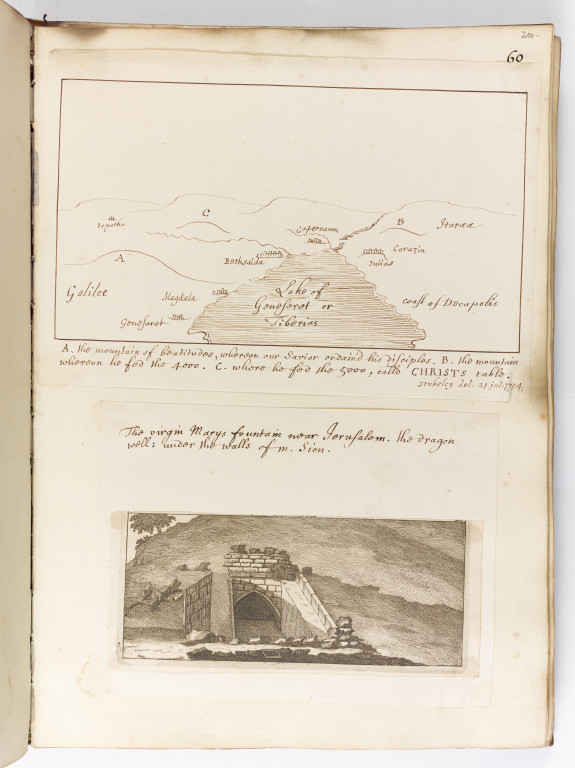 60
C
Iotapatha
Capernaum
B
Ituræa
A
Bethsaida
Corazin
Julias
Galilee
Magdala
Lake of
Geneseret or
Tiberias
coast of Decapolis
Geneseret
A. the mountain of beatitudes, whereon our Savior ordaind his disciples. B. the mountain
whereon he fed the 4000. C. where he fed the 5000, calld CHRISTS table.
Stukeley del. 21. jul. 1754.
The virgin Marys fountain near Jerusalem. the dragon
well: under the walls of m. Sion.